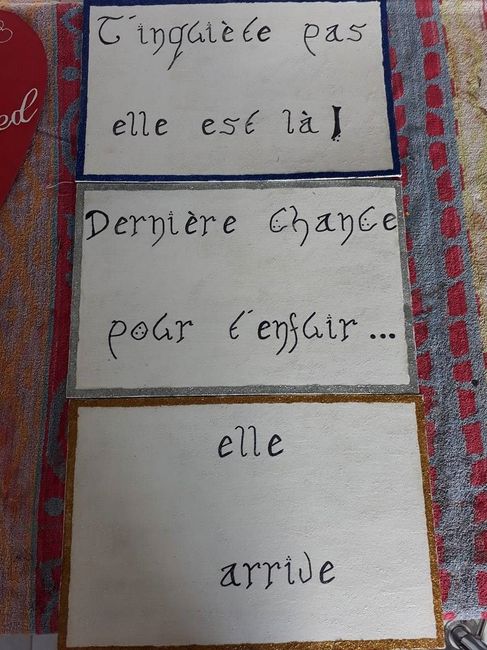 T'inquiète pas
elle est là !
ed
Dernière Chance
pour t'enfuir...
elle
arrive